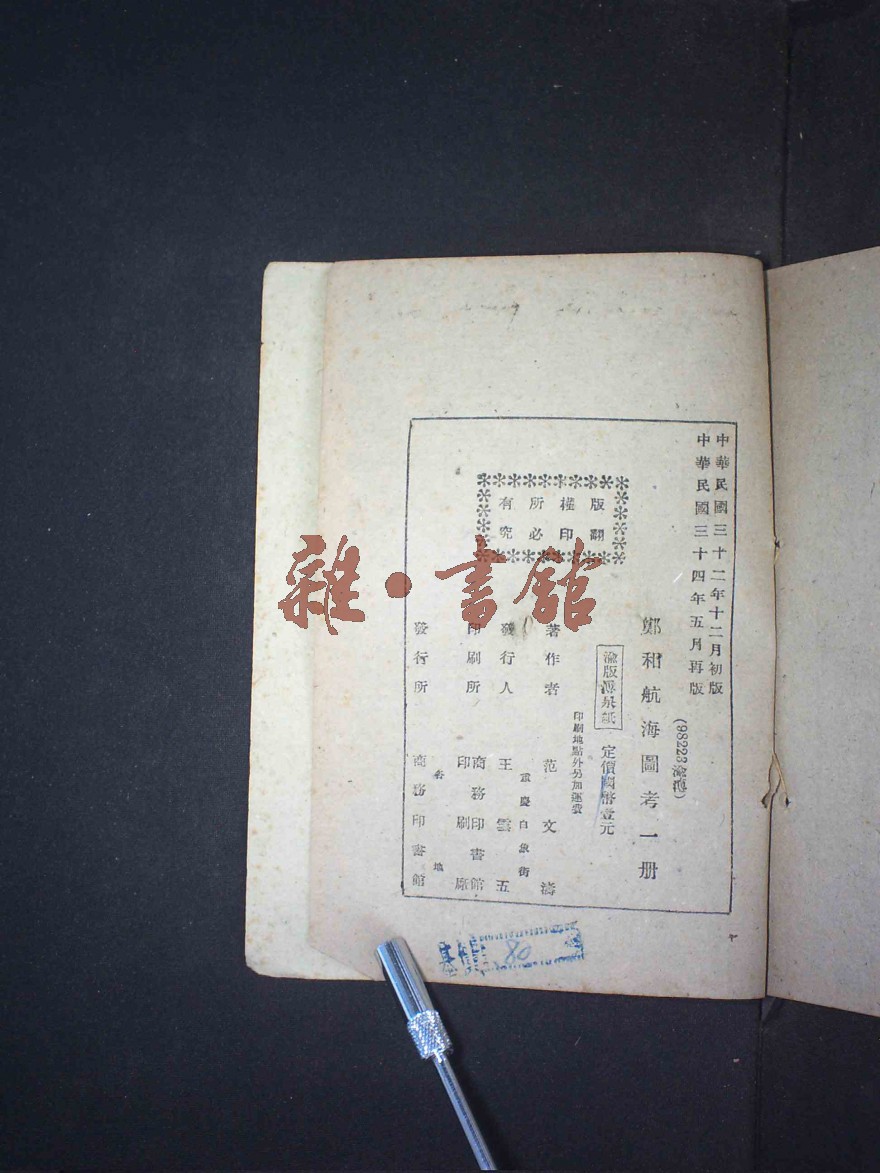 中華民國三十二年十二月初版
中華民國三十四年五月再版
(98223渝
鄭和航海圖考一册
渝版 紙
定價國幣壹元
印刷地點外另加運費
版權所有
翻印必究
著作者 范文濤
重慶白象街
發行人 王雲五
印刷所 商務印書館
印刷廠
各地
發行所 商務印書館
雜·書館